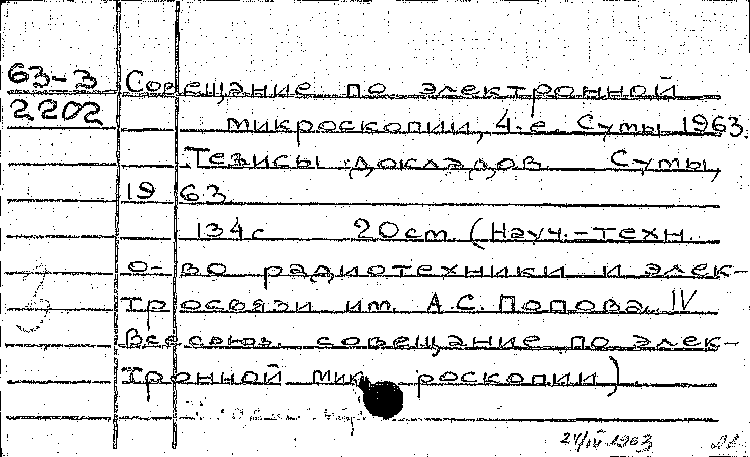 63-3 Совещание по электронной
2202 микроскопии, 4-е. Сумы 1963.
Тезисы докладов. Сумы,
1963
134с 20см (Науч.-техн.
о-во радиотехники и элек-
тросвязи им. А.С. Попова. IV
Всесоюз. совещание по элек-
тронной микроскопии)
24/IV 1963